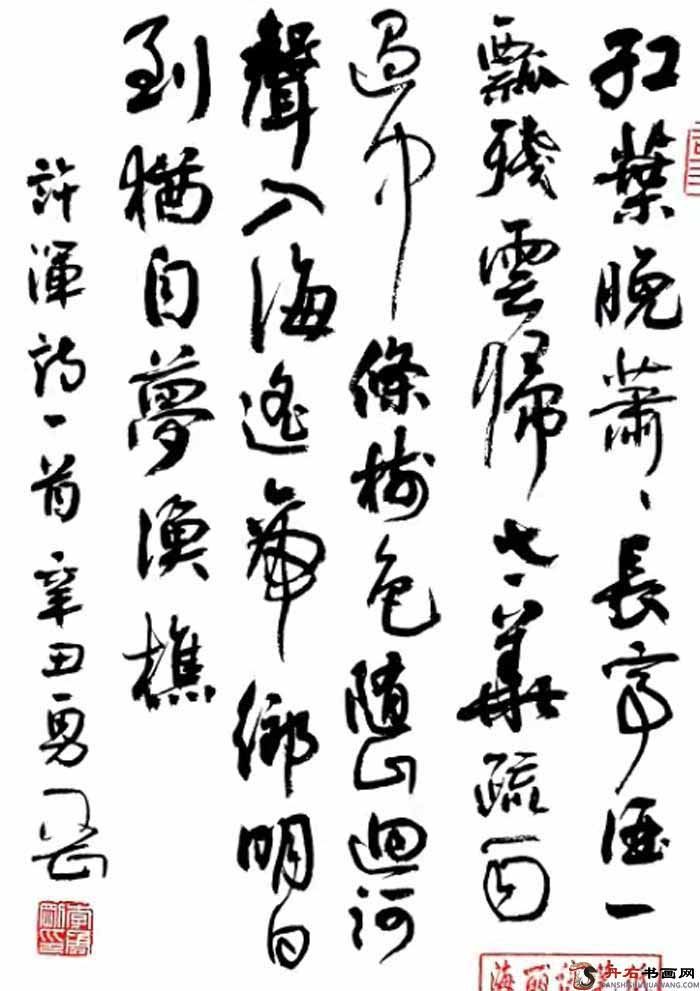 紅葉晚蕭〻長亭酒一
瓢殘雲歸太華疏雨
過中條樹色隨山迴河
聲入海遙帝鄉明日
到猶自夢漁樵
許渾詩一首辛丑勇
书画网